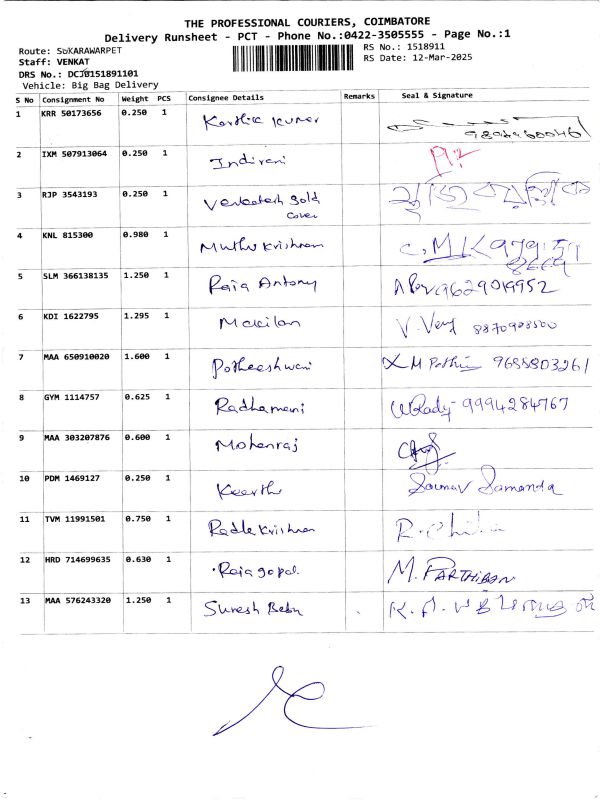 THE PROFESSIONAL COURIERS, COIMBATORE
Delivery Runsheet - PCT - Phone No.:0422-3505555 - Page No.:1
Route: SUKARAWARPET
RS No.: 1518911
Staff: VENKAT
RS Date: 12-Mar-2025
DRS No.: DCJ0151891101
Vehicle: Big Bag Delivery
S No Consignment No Weight PCS Consignee Details Remarks Seal & Signature
1 KRR 50173656 0.250 1 Karthik Kumar
2 IXM 507913064 0.250 1 Indirani
3 RJP 3543193 0.250 1 Venkatesh gold
cover
4 KNL 815300 0.980 1 Muthu Krishnan C.M.K
5 SLM 366138135 1.250 1 Raja Antony
6 KDI 1622795 1.295 1 Makilan
7 MAA 650910020 1.600 1 Potheeshwari 9688803261
8 GYM 1114757 0.625 1 Radhamani 9994284767
9 MAA 303207876 0.600 1 Mohanraj
10 PDM 1469127 0.250 1 Keerthi Sourav Samanda
11 TVM 11991501 0.750 1 Radha Krishnan
12 HRD 714699635 0.630 1 Rajagopal M. PARTHIBAN
13 MAA 576243320 1.250 1 Suresh Babu